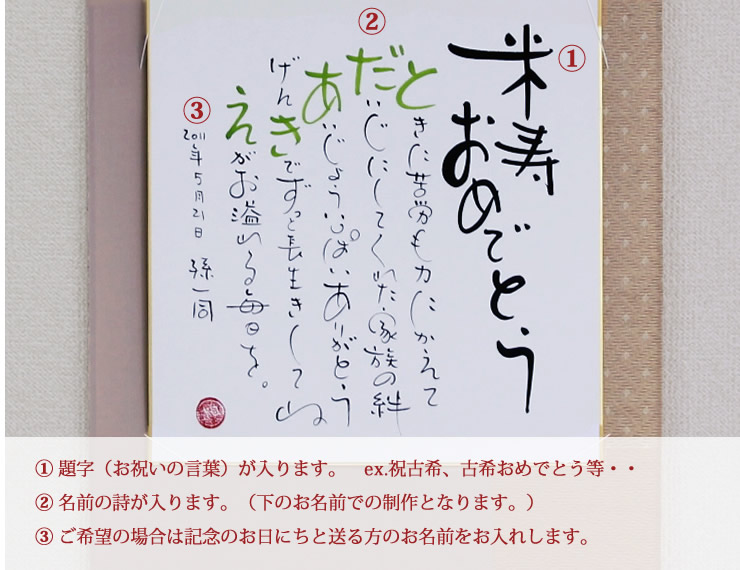 ①
米寿
おめでとう
②
ときに苦労も力にかえて
だいじにしてくれた家族の絆
あいじょういっぱいありがとう
げんきでずっと長生きしてね
えがお溢れる毎日を。
③
2011年5月21日 孫一同
① 題字（お祝いの言葉）が入ります。 ex.祝古希、古希おめでとう等・・
② 名前の詩が入ります。（下のお名前での制作となります。）
③ ご希望の場合は記念のお日にちと送る方のお名前をお入れします。